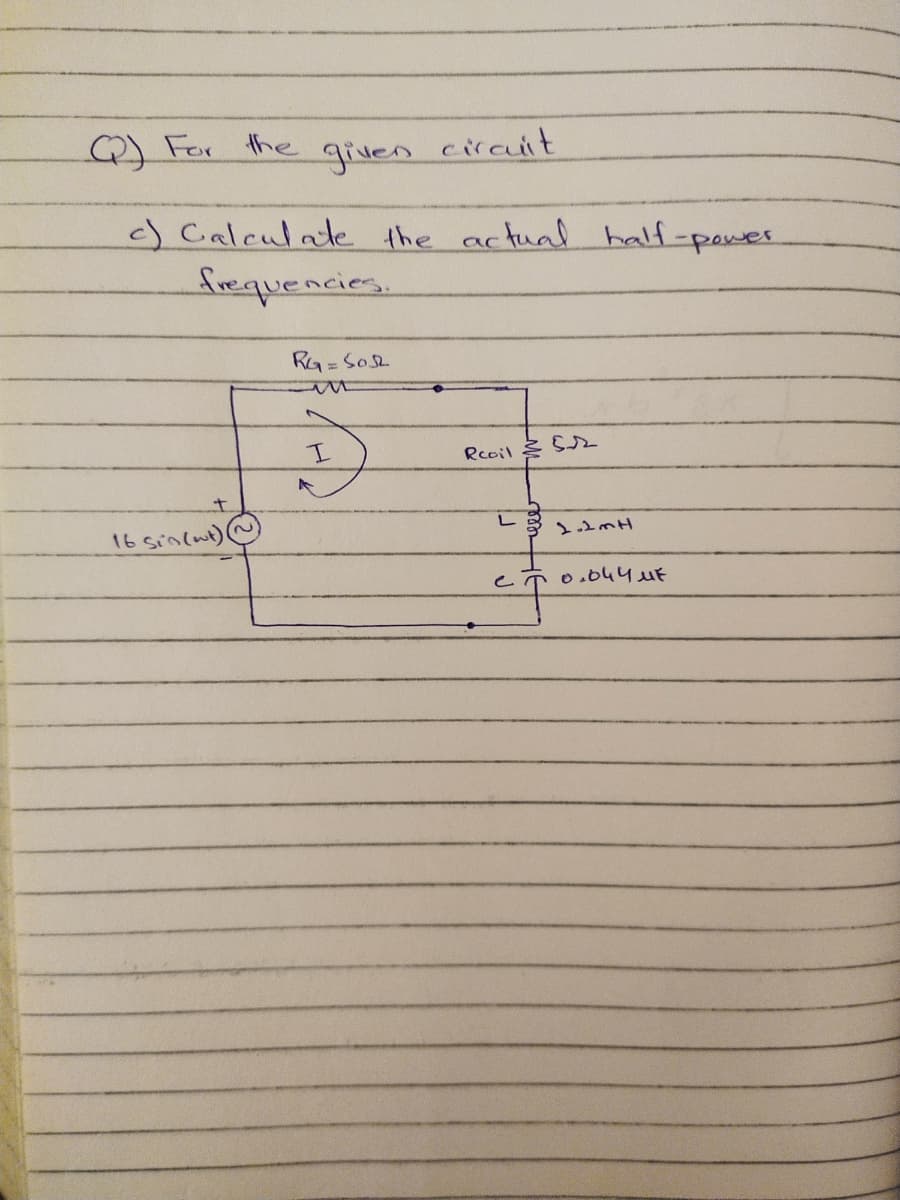 Q) For the given circuit
c) Calculate the actual half-power
frequencies.
RG = 50Ω
I
Rcoil 5Ω
+
16 sin(wt) ~
-
L 2.2mH
c 0.044 uF